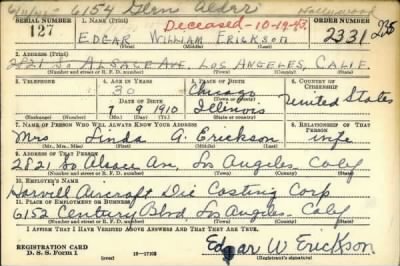 6154 Glen Alder Hollywood
Deceased-10-19-43.
SERIAL NUMBER 1. NAME (Print) ORDER NUMBER
127 EDGAR WILLIAM ERICKSON 2331
(First) (Middle) (Last)
2. ADDRESS (Print)
2821 So ALSACE AVE. LOS ANGELES, CALIF.
(Number and street or R. F. D. number) (Town) (County) (State)
3. TELEPHONE 4. AGE IN YEARS 5. PLACE OF BIRTH 6. COUNTRY OF CITIZENSHIP
30 Chicago
DATE OF BIRTH (Town or county)
7 9 1910 Illinois United States
(Exchange) (Number) (Mo.) (Day) (Yr.) (State or country)
7. NAME OF PERSON WHO WILL ALWAYS KNOW YOUR ADDRESS 8. RELATIONSHIP OF THAT PERSON
Mrs Linda G. Erickson wife
(Mr., Mrs., Miss) (First) (Middle) (Last)
9. ADDRESS OF THAT PERSON
2821 So Alsace Av, Los Angeles Calif
(Number and street or R. F. D. number) (Town) (County) (State)
10. EMPLOYER'S NAME
Harvell Aircraft Die Casting Corp
11. PLACE OF EMPLOYMENT OR BUSINESS
6152 Century Blvd Los Angeles Calif
(Number and street or R. F. D. number) (Town) (County) (State)
I AFFIRM THAT I HAVE VERIFIED ABOVE ANSWERS AND THAT THEY ARE TRUE.
REGISTRATION CARD Edgar W Erickson
D. S. S. FORM 1 (over) (Registrant's signature)